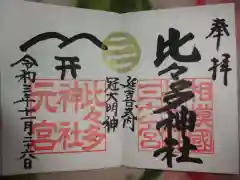 奉拝
相模國
三之宮
比々多神社
延喜式内
冠大明神
比々多
神社
元宮
令和三年十一月